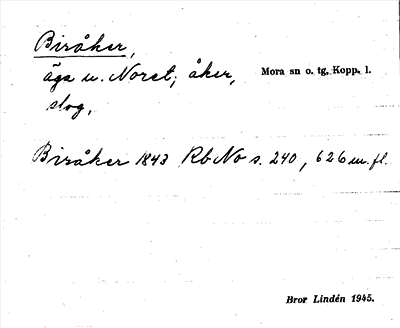 Biråker,
äga u. Noret; åker, Mora sn o. tg, Kopp. l.
slog.
Biråker 1843 RbNo s. 240, 626 m. fl.
Bror Lindén 1945.